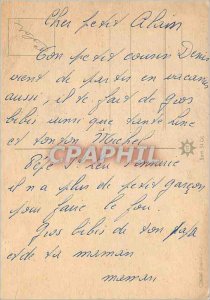 Cher petit Alain
Ton petit cousin Denis
vient de partir en vacances
aussi, il te fait de gros
bibis ainsi que tante Line
et tonton Michel
Pépé s'en ennuie
il n'a plus de petit garçon
pour faire le fou.
Gros bibis de ton papa
et de ta maman
maman
CPAPHIL